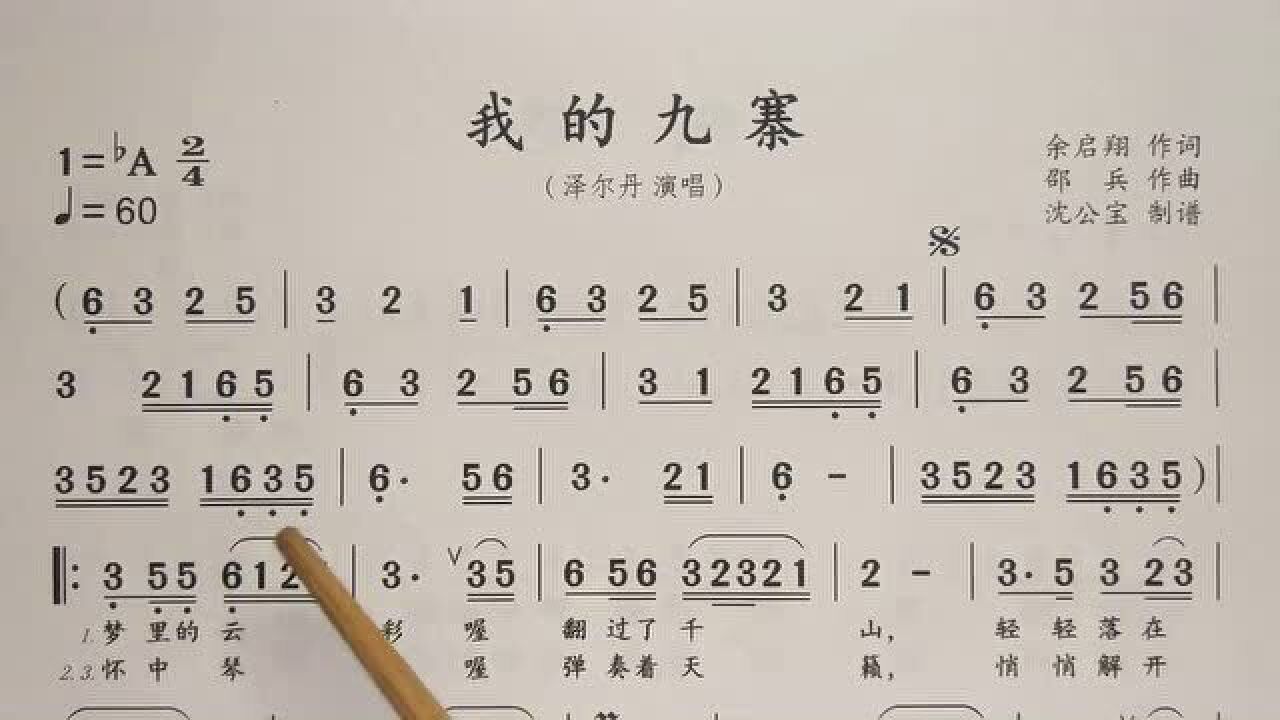 我的九寨
(泽尔丹 演唱)
1=♭A 2/4
♩=60
余启翔 作词
邵 兵 作曲
沈公宝 制谱
( 6 3 2 5 | 3 2 1 | 6 3 2 5 | 3 2 1 | 6 3 2 5 6 |
3 2 1 6 5 | 6 3 2 5 6 | 3 1 2 1 6 5 | 6 3 2 5 6 |
3 5 2 3 1 6 3 5 | 6· 5 6 | 3· 2 1 | 6 - | 3 5 2 3 1 6 3 5 ) |
‖: 3 5 5 6 1 2 | 3· ∨ 3 5 | 6 5 6 3 2 3 2 1 | 2 - | 3· 5 3 2 3 |
1.梦 里的 云 彩 喔 翻 过了 千 山, 轻 轻 落 在
2.3.怀 中 琴 喔 弹 奏着 天 籁, 悄 悄 解 开